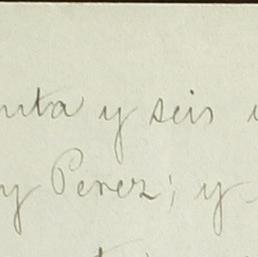 nta y seis
y Perez; y